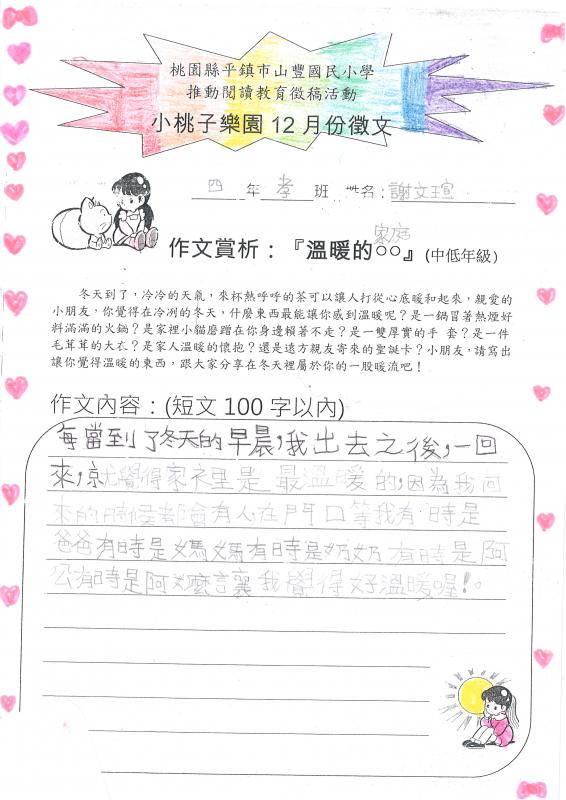 桃園縣平鎮市山豐國民小學
推動閱讀教育徵稿活動
小桃子樂園 12 月份徵文
四 年 孝 班 姓名:謝文瑄
家庭
作文賞析:『溫暖的○○』(中低年級)
冬天到了,冷冷的天氣,來杯熱呼呼的茶可以讓人打從心底暖和起來,親愛的
小朋友,你覺得在冷冽的冬天,什麼東西最能讓你感到溫暖呢?是一鍋冒著熱煙好
料滿滿的火鍋?是家裡小貓磨蹭在你身邊賴著不走?是一雙厚實的手 套?是一件
毛茸茸的大衣?是家人溫暖的懷抱?還是遠方親友寄來的聖誕卡?小朋友,請寫出
讓你覺得溫暖的東西,跟大家分享在冬天裡屬於你的一股暖流吧!
作文內容:(短文 100 字以內)
每當到了冬天的早晨,我出去之後,一回
來,就覺得家裡是 最溫暖 的,因為我回
來的時候都會有人在門口等我有 時是
爸爸有時是媽媽有時是奶奶 有時是阿
公有時是阿嬤讓 我覺得好溫暖喔!。